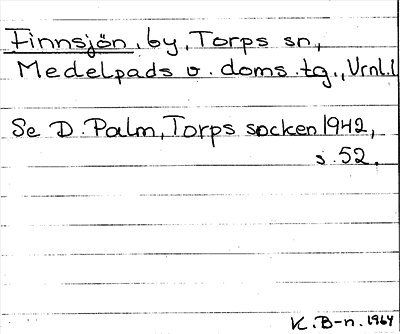 Finnsjön, by, Torps sn,
Medelpads v. doms.tg., Vrnl.l
Se D. Palm, Torps socken 1942,
s. 52.
K. B-n. 1964